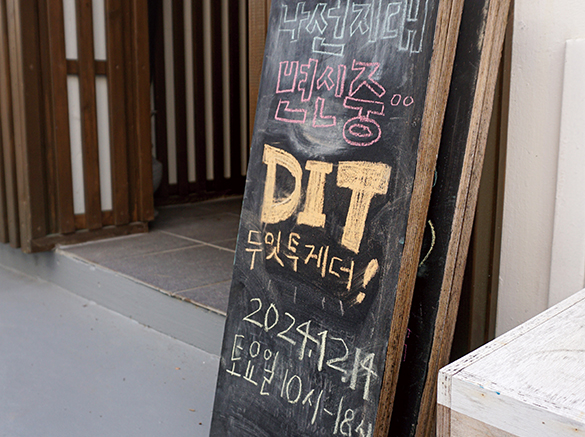 낙선재래
변신중..
DIT
두잇투게더!
2024.12.14
토요일 10시-18시